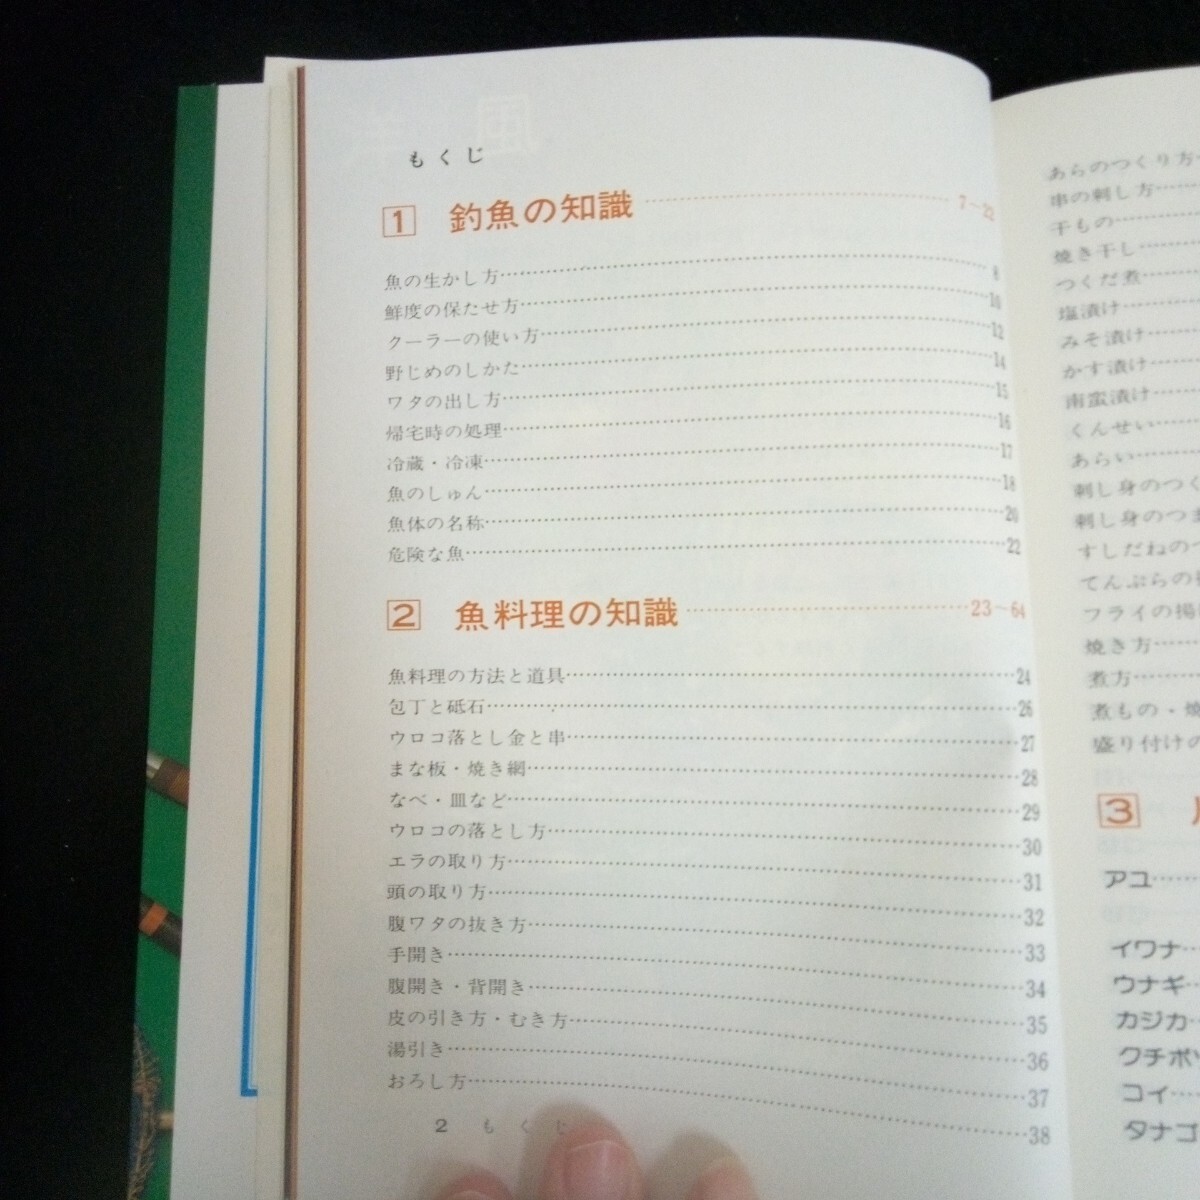 もくじ
1 釣魚の知識 7～22
魚の生かし方 8
鮮度の保たせ方 10
クーラーの使い方 12
野じめのしかた 14
ワタの出し方 15
帰宅時の処理 16
冷蔵・冷凍 17
魚のしゅん 18
魚体の名称 20
危険な魚 22
2 魚料理の知識 23～64
魚料理の方法と道具 24
包丁と砥石 26
ウロコ落とし金と串 27
まな板・焼き網 28
なべ・皿など 29
ウロコの落とし方 30
エラの取り方 31
頭の取り方 32
腹ワタの抜き方 33
手開き 34
腹開き・背開き 35
皮の引き方・むき方 36
湯引き 37
おろし方 38
2 もくじ
あらのつくり方
串の刺し方
干もの
焼き干し
つくだ煮
塩漬け
みそ漬け
かす漬け
南蛮漬け
くんせい
あらい
刺し身のつく
刺し身のつま
すしだねの
てんぷらの
フライの揚げ
焼き方
煮方
煮もの・焼
盛り付けの
3
アユ
イワナ
ウナギ
カジカ
クチボソ
コイ
タナゴ